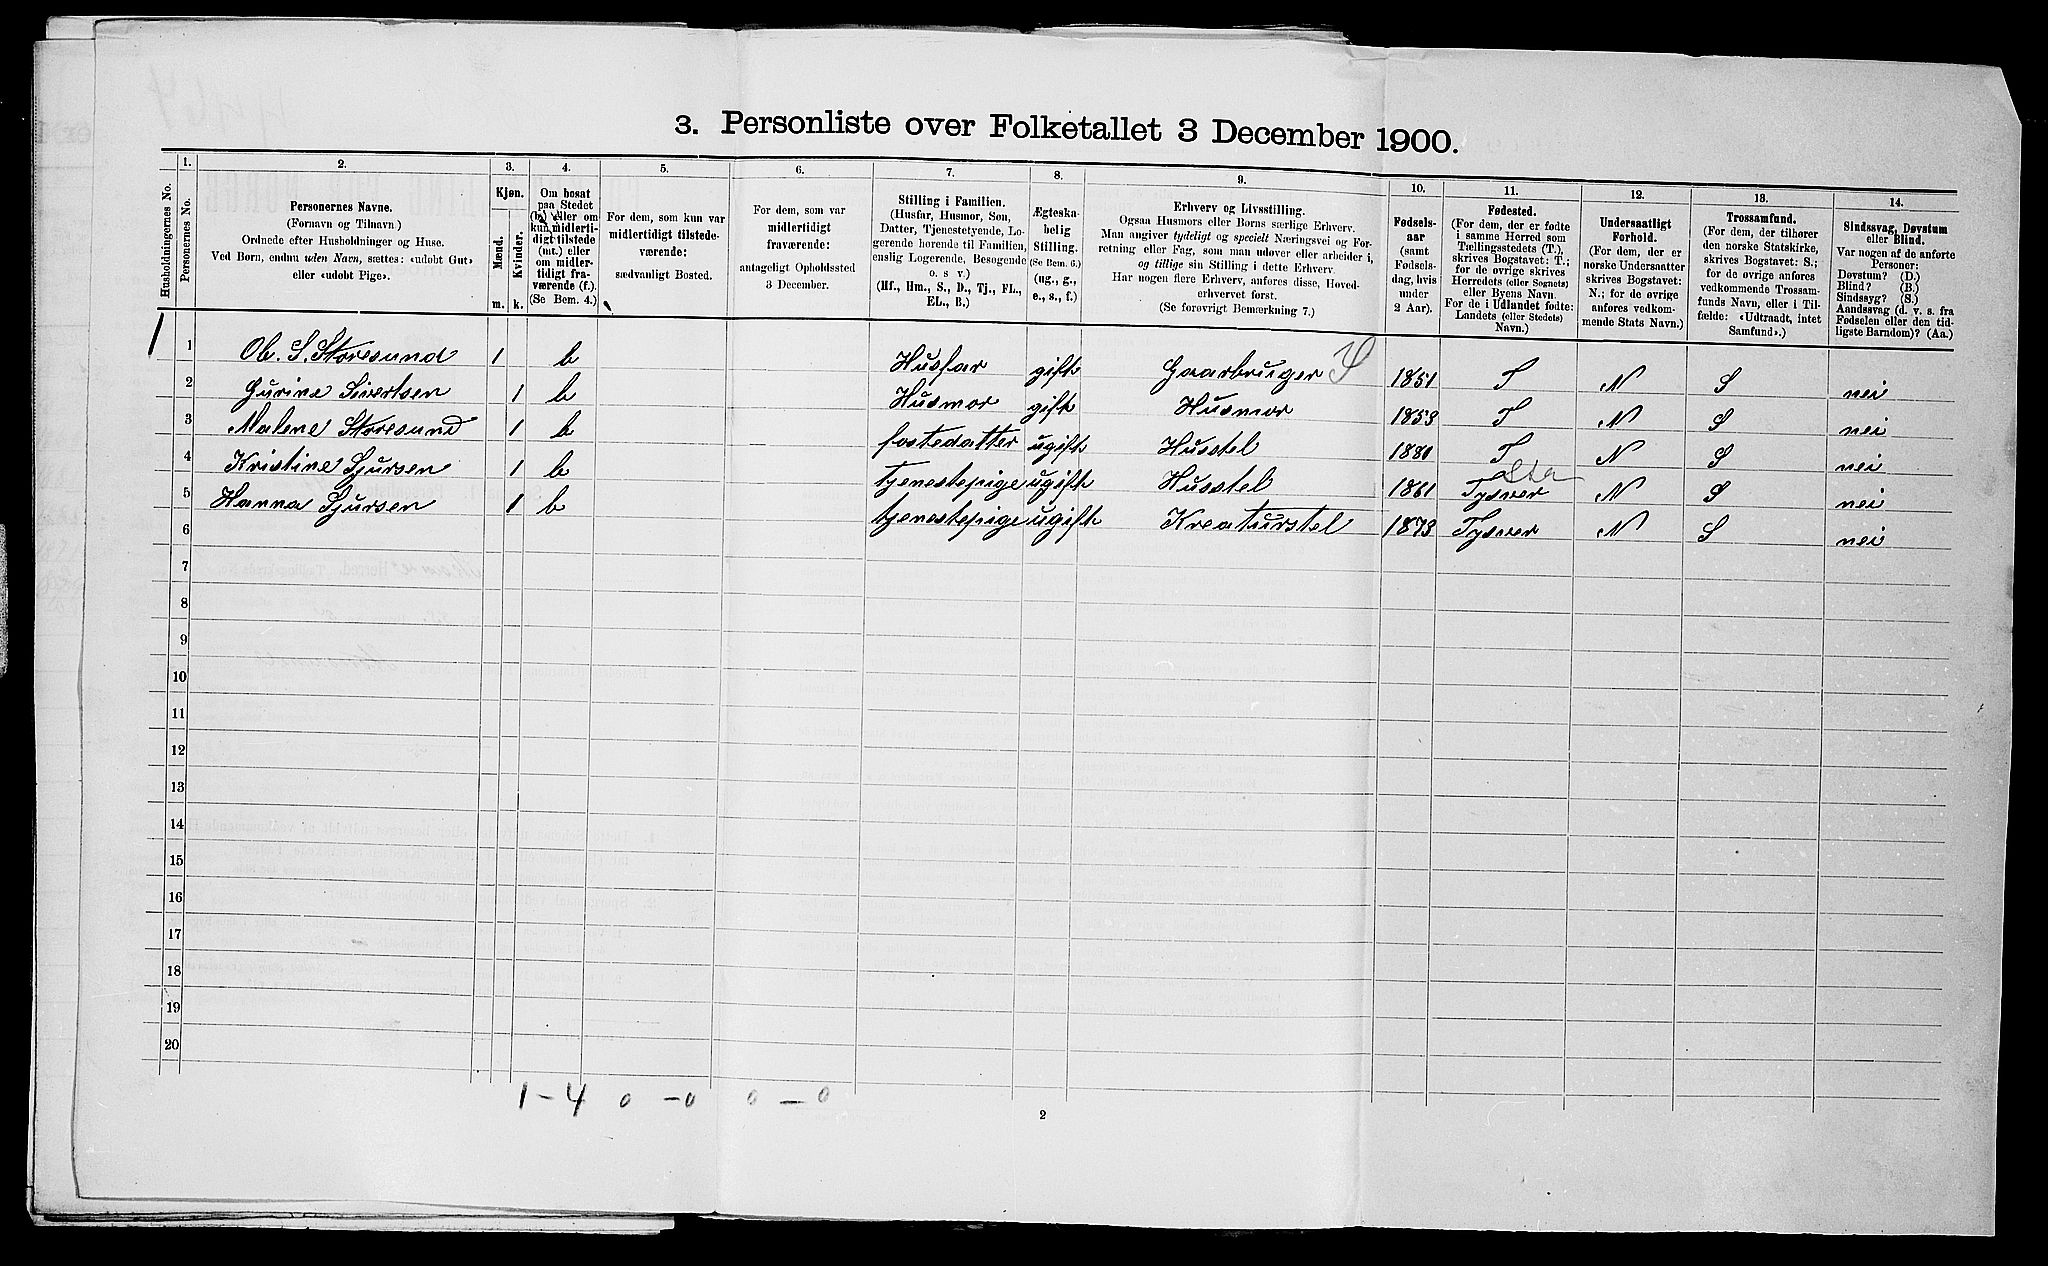 3. Personliste over Folketallet 3 December 1900.
1. 2. 3. 4. 5. 6. 7. 8. 9. 10. 11. 12. 13. 14.
Husholdningernes No.
Personernes No.
Personernes Navne.
(Fornavn og Tilnavn)
Ordnede efter Husholdninger og Huse.
Ved Børn, endnu uden Navn, sættes: «udøbt Gut»
eller «udøbt Pige».
Kjøn.
Mænd.
Kvinder.
m. k.
Om bosat
paa Stedet
(b) eller om
kun midlerti-
digt tilstede
(mt.) eller
om midler-
tidigt fra-
værende (f.).
(Se Bem. 4.)
For dem, som kun var
midlertidigt tilstede-
værende:
sædvanligt Bosted.
For dem, som var
midlertidigt
fraværende:
antageligt Opholdssted
3 December.
Stilling i Familien.
(Husfar, Husmor, Søn,
Datter, Tjenestetyende, Lo-
gerende hørende til Familien,
enslig Logerende, Besøgende
o. s. v.)
(Hf., Hm., S., D., Tj., FL.,
EL., B.)
Ægteska-
belig
Stilling.
(Se Bem. 6.)
(ug., g.,
e., s., f.)
Erhverv og Livsstilling.
Ogsaa Husmors eller Børns særlige Erhverv.
Man angiver tydeligt og specielt Næringsvei og For-
retning eller Fag, som man udøver eller arbeider i,
og tillige sin Stilling i dette Erhverv.
Har nogen flere Erhverv, anføres disse, Hoved-
erhvervet først.
(Se forøvrigt Bemærkning 7.)
Fødsels-
aar
(samt
Fødsels-
dag, hvis
under
2 Aar).
Fødested.
(For dem, der er fødte
i samme Herred som
Tællingsstedets (T.),
skrives Bogstavet: T.;
for de øvrige skrives
Herredets (eller Sognets)
eller Byens Navn.
For de i Udlandet fødte:
Landets (eller Stedets)
Navn.)
Undersaatligt
Forhold.
(For dem, der er
norske Undersaatter
skrives Bogstavet:
N.; for de øvrige
anføres vedkom-
mende Stats Navn.)
Trossamfund.
(For dem, der tilhører
den norske Statskirke,
skrives Bogstavet: S.;
for de øvrige anføres
vedkommende Trossam-
funds Navn, eller i Til-
fælde: «Udtraadt, intet
Samfund».)
Sindssvag, Døvstum
eller Blind.
Var nogen af de anførte
Personer:
Døvstum? (D.)
Blind? (B.)
Sindssyg? (S.)
Aandssvag (d. v. s. fra
Fødselen eller den tid-
ligste Barndom)? (Aa.)
1 1 Ob. S. Storesund 1 b Husfar gift Gaarbruger S 1851 T N S nei
2 Gurine Sivertsen 1 b Husmor gift Husmor 1853 T N S nei
3 Malene Storesund 1 b fostedatter ugift Husstel 1881 T N S nei
4 Kristine Sjursen 1 b tjenestepige ugift Husstel 1861 Tysver N S nei
5 Hanna Sjursen 1 b tjenestepige ugift Kreaturstel 1873 Tysver N S nei
6
7
8
9
10
11
12
13
14
15
16
17
18
19
20
1 - 4 0 - 0 0 - 0
2